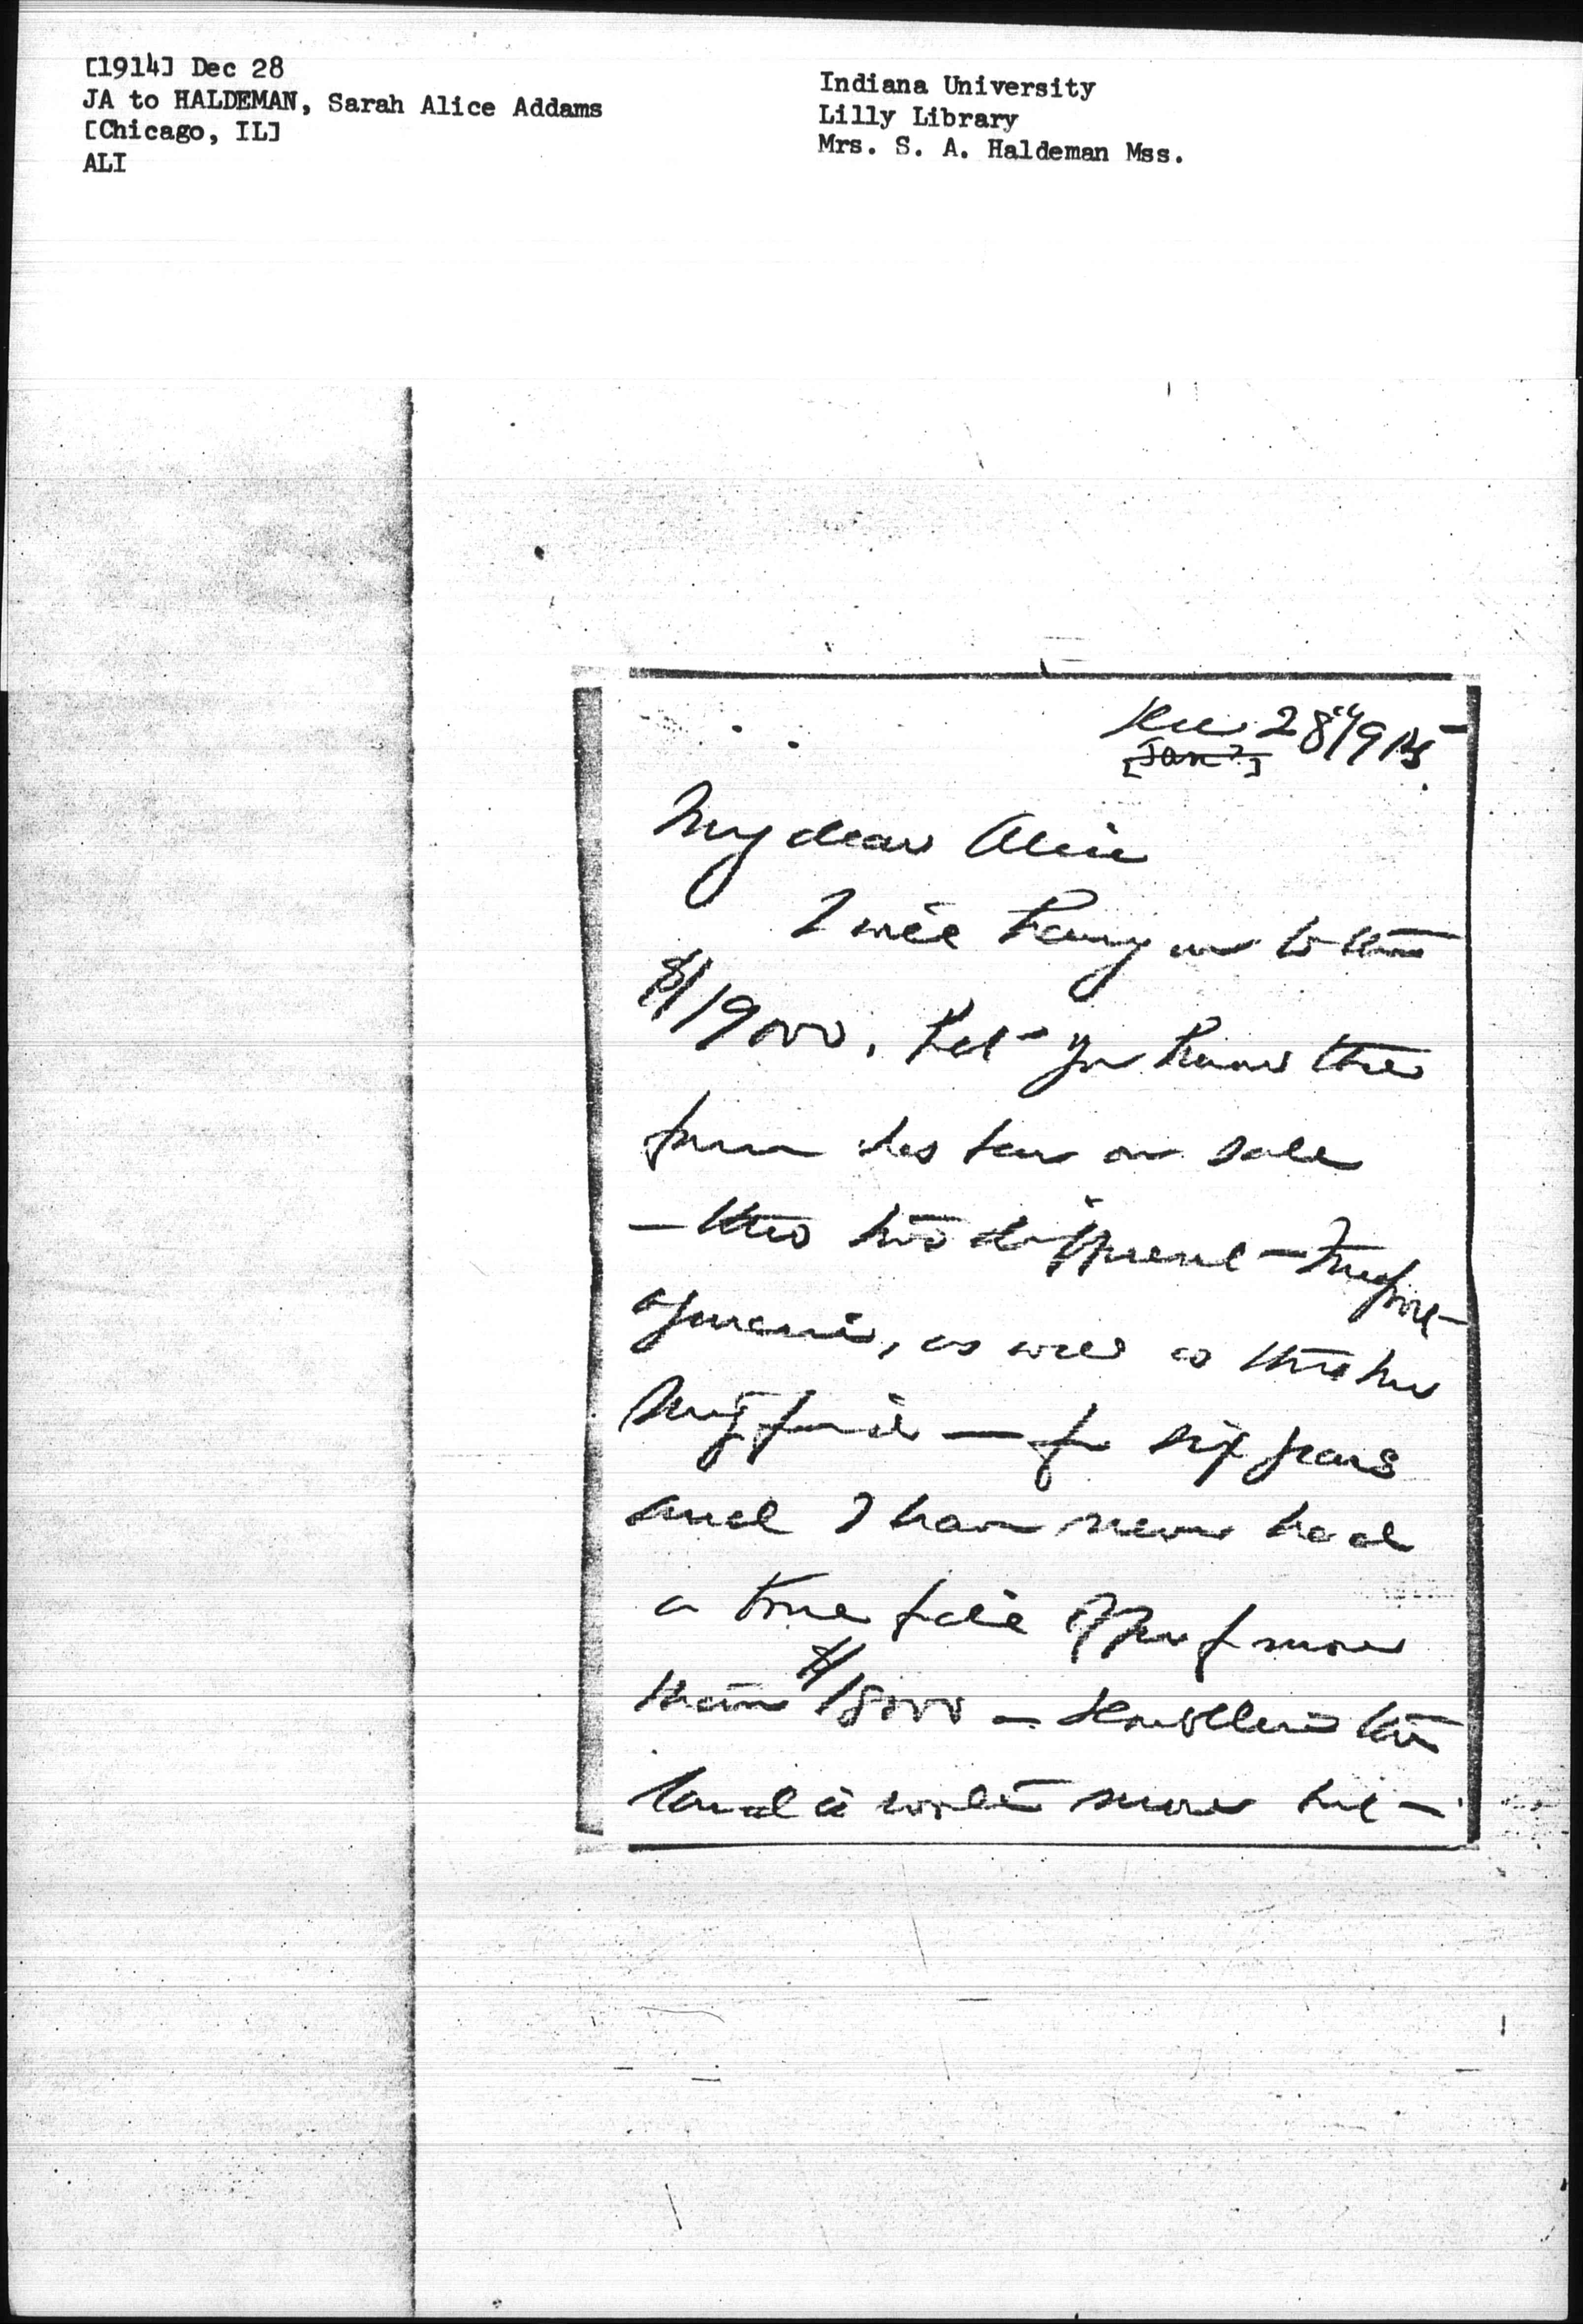 [1914] Dec 28
JA to HALDEMAN, Sarah Alice Addams
[Chicago, IL]
ALI
Indiana University
Lilly Library
Mrs. S. A. Haldeman Mss.
Dec 28" 1915
[Jan?]
My dear Alice
I will hang on to the
$19000. But you know the
farm has been on sale
— thro two different
agencies, as well as thro
— for six years
and I have never had
a bona fide offer of more
than $18000 — doubtless the
land is worth more but —